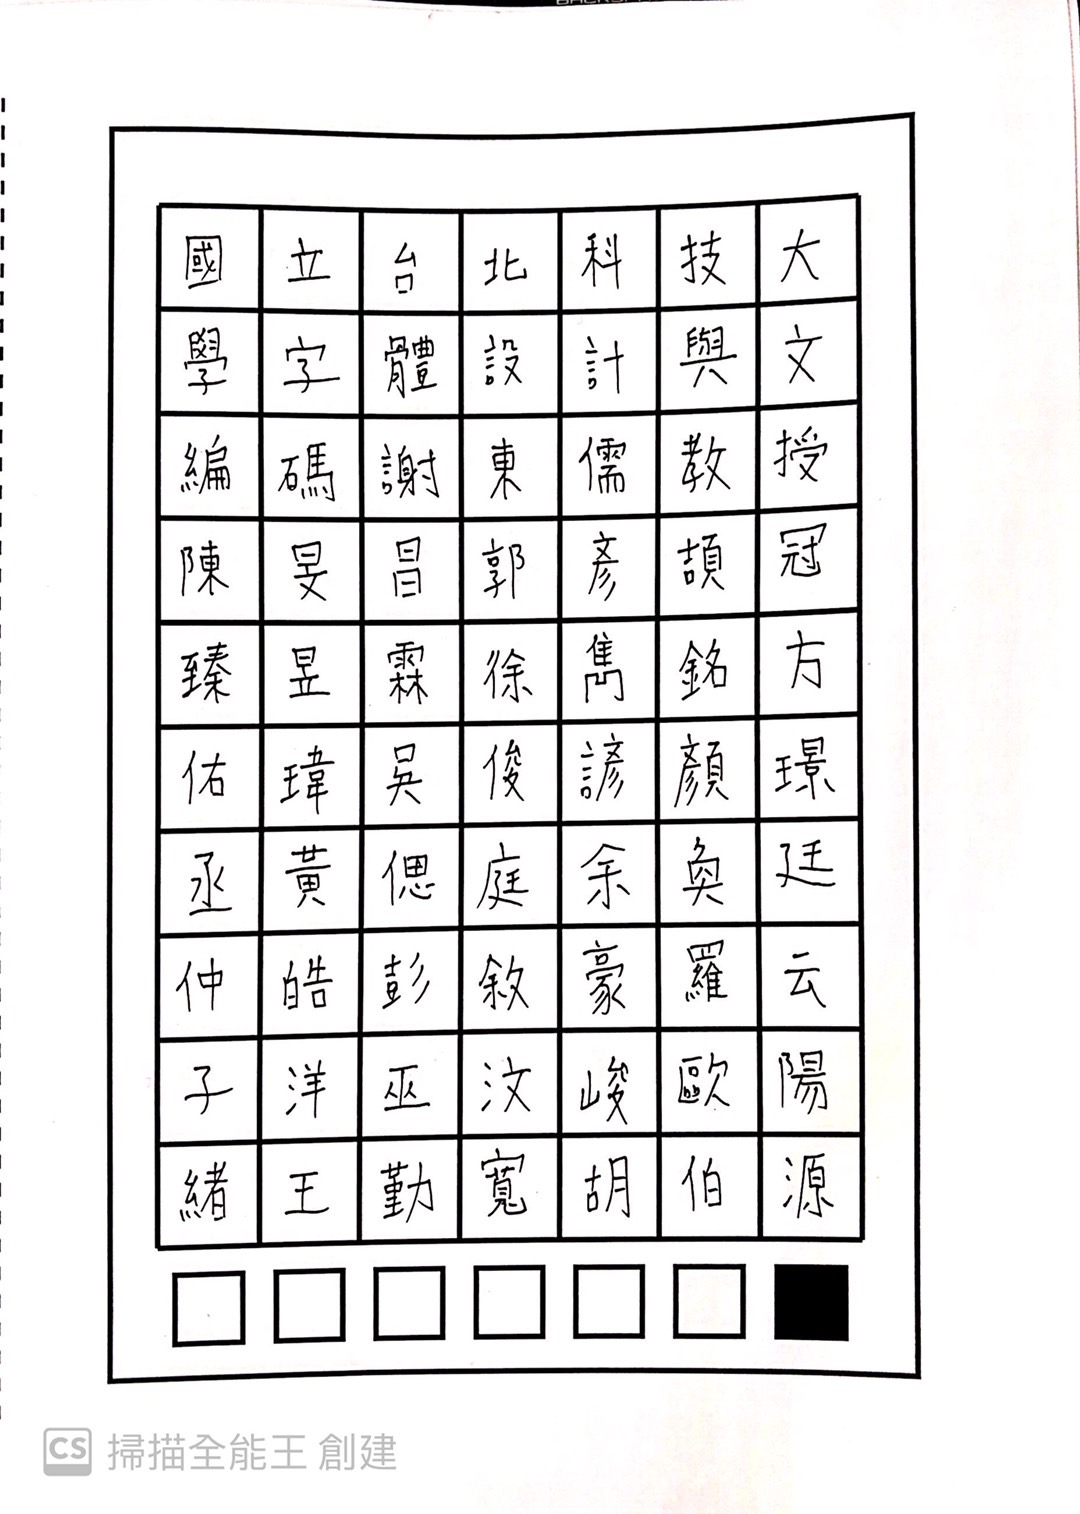 國立台北科技大
學字體設計與文
編碼謝東儒教授
陳旻昌郭彥頡冠
臻昱霖徐雋銘方
佑瑋吳俊諺顏璟
丞黃偲庭余奐廷
仲皓彭敘豪羅云
子洋巫汶峻歐陽
緒王勤寬胡伯源
CS 掃描全能王 創建